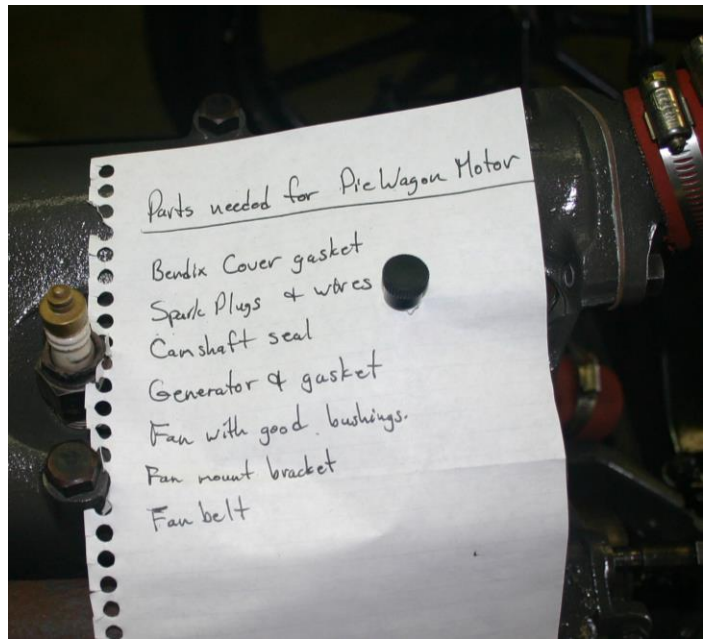 Parts needed for Pie Wagon Motor
Bendix Cover gasket
Spark Plugs & wires
Camshaft seal
Generator & gasket
Fan with good bushings.
Fan mount bracket
Fan belt